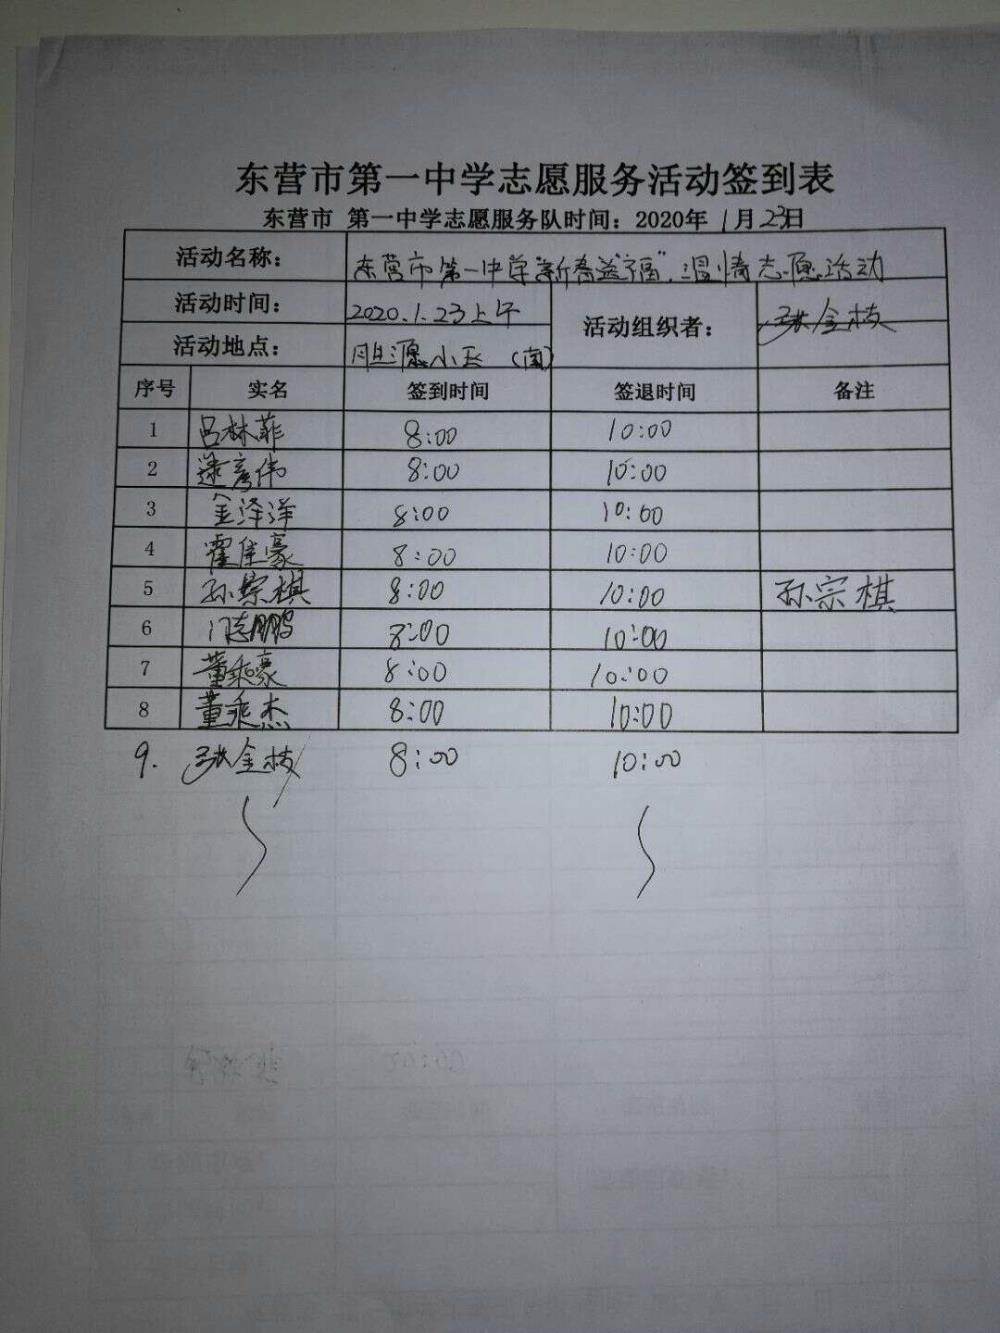 东营市第一中学志愿服务活动签到表
东营市 第一中学志愿服务队时间：2020年1月23日
活动名称： 东营市第一中学"新春送福"温情志愿活动
活动时间： 2020.1.23上午 活动组织者： 张金枝
活动地点： 胆源小区（南）
序号 实名 签到时间 签退时间 备注
1 吕林菲 8:00 10:00
2 逯彦伟 8:00 10:00
3 金泽洋 8:00 10:00
4 霍佳豪 8:00 10:00
5 孙宗棋 8:00 10:00 孙宗棋
6 门志鹏 8:00 10:00
7 董乘豪 8:00 10:00
8 董乘杰 8:00 10:00
9. 张金枝 8:00 10:00